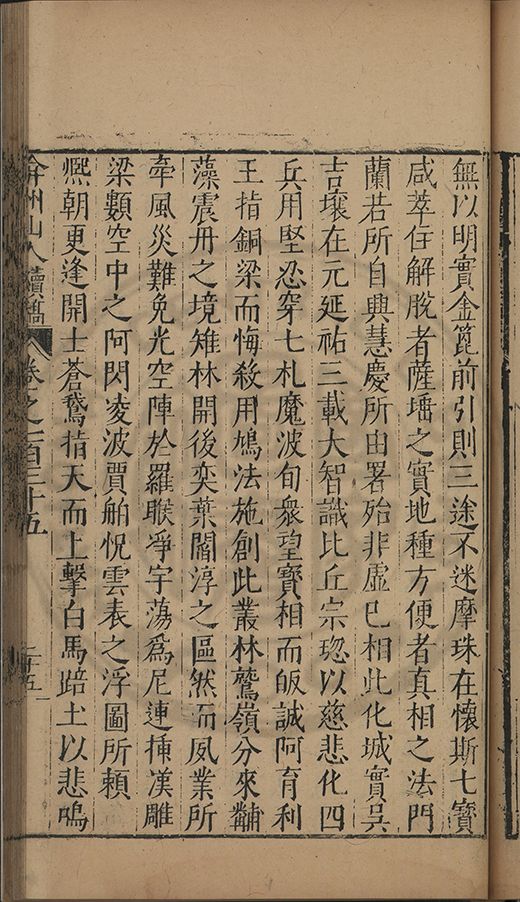 無以明實金篦前引則三途不迷摩珠在懷斯七寶
咸萃任解脫者薩墦之實地種方便者真相之法門
蘭若所自興慧慶所由署殆非虛已相此化城實吳
吉壤在元延祐三載大智識比丘宗璁以慈悲化四
兵用堅忍穿七札魔波旬衆望寶相而皈誠阿育利
王指銅梁而悔殺用鳩法施創此叢林鷲嶺分來黼
藻震丹之境雉林開後奕葉閻淳之區然而夙業所
牽風災難免光空陣於羅睺凈宇蕩爲尼連揷漢雕
梁顟空中之阿閃凌波賈舶怳雲表之浮圖所頼
熈朝更逢開士蒼鵞指天而上擊白馬踣土以悲鳴
弇州山人續稿 卷之一百三十五 二十五